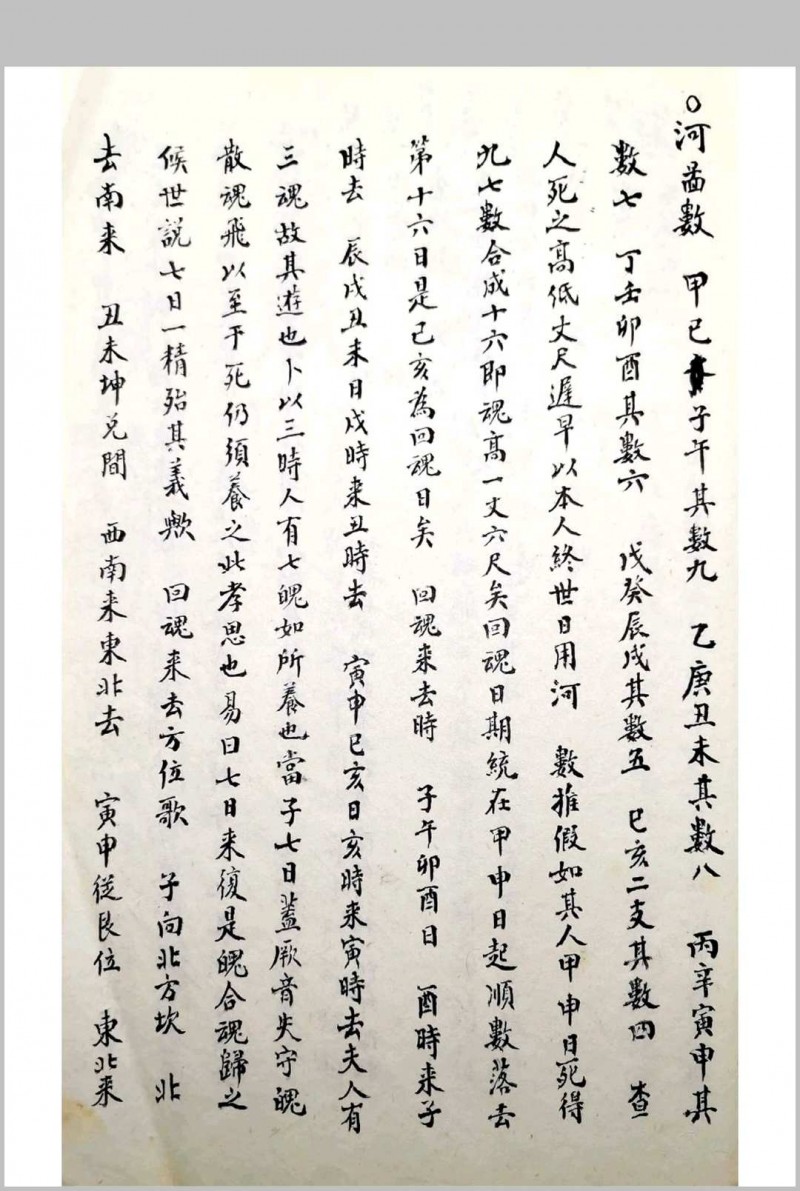 ○河啚數 甲己子午其數九 乙庚丑未其數八 丙辛寅申其
數七 丁壬卯酉其數六 戊癸辰戌其數五 巳亥二支其數四 查
人死之高低丈尺遲早以本人終世日用河 數推假如其人甲申日死得
九七數合成十六即魂高一丈六尺矣回魂日期統在甲申日起順數落去
第十六日是己亥為回魂日矣 回魂来去時 子午卯酉日 酉時来子
時去 辰戌丑未日戌時来丑時去 寅申巳亥日亥時来寅時去夫人有
三魂故其遊也卜以三時人有七魄如所養也當子七日蓋厥音失守魄
散魂飛以至于死仍須養之此孝思也易曰七日来復是魄合魂歸之
候世説七日一精殆其義歟 回魂来去方位歌 子向北方坎 北
去南来 丑未坤兑間 西南来東北去 寅申從艮位 東北来